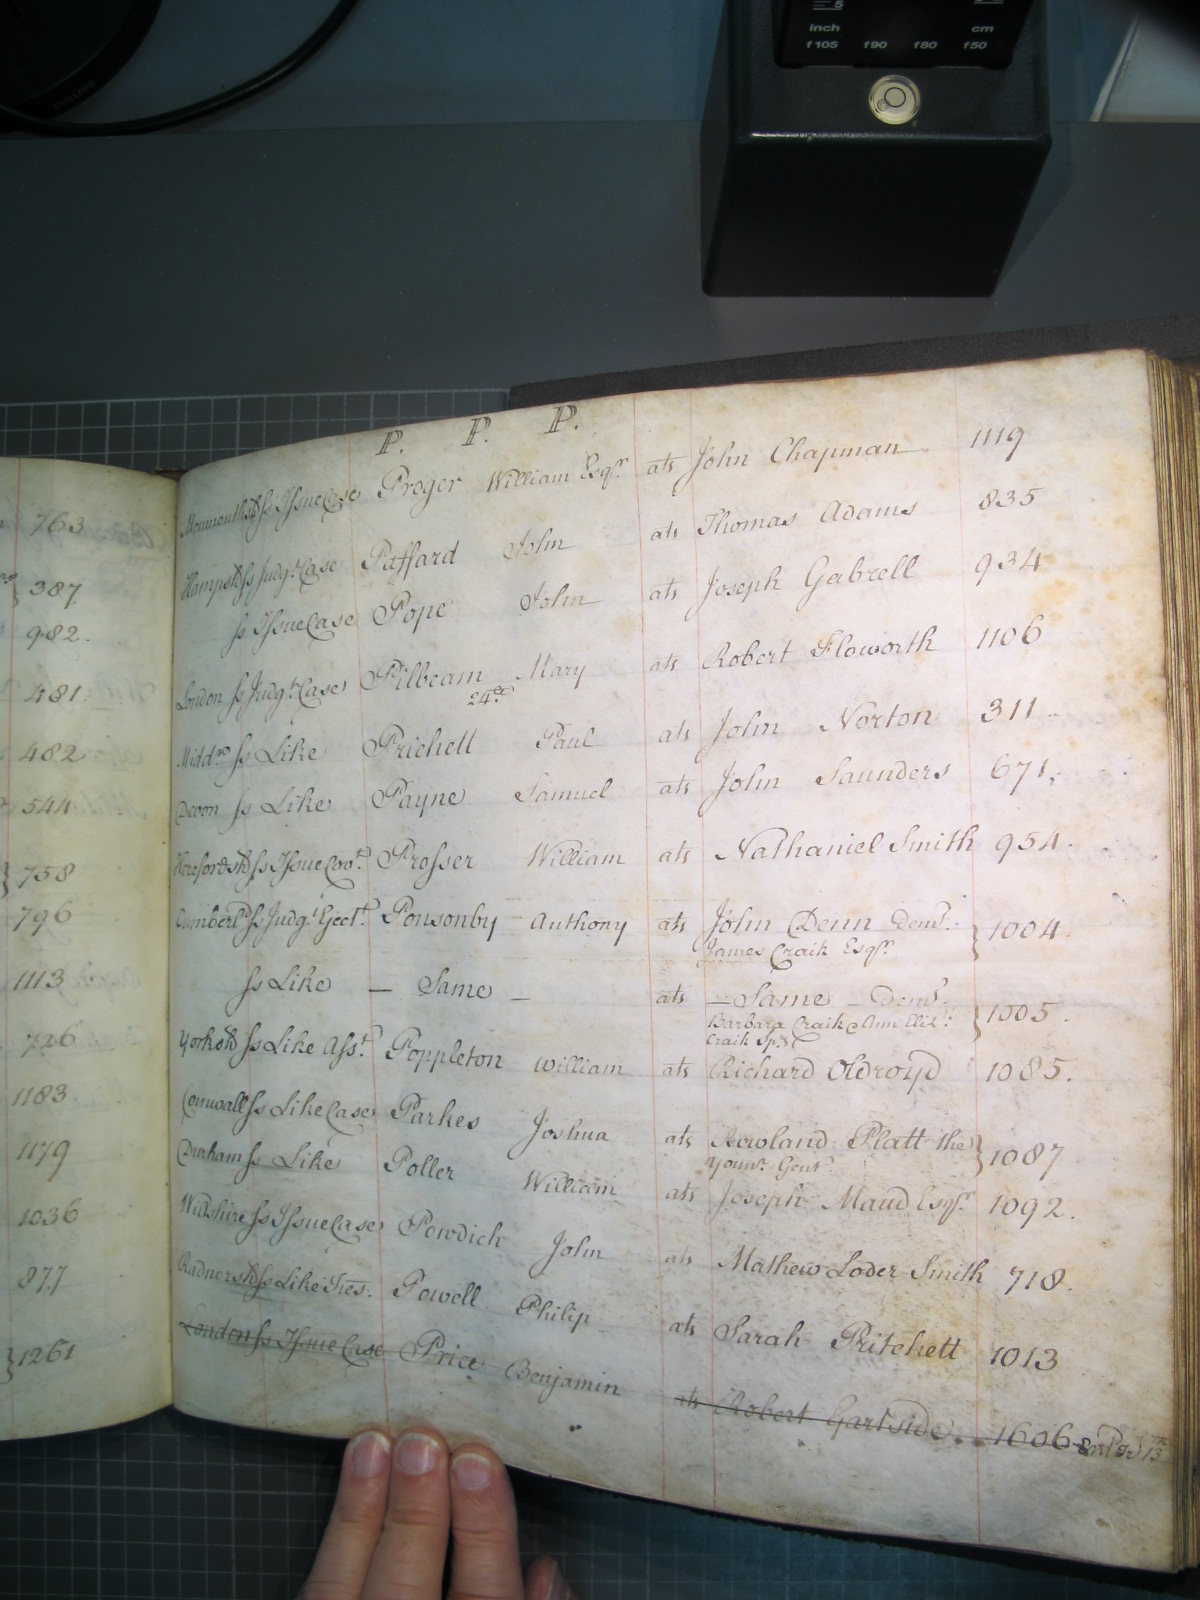 inch cm
f105 f90 f80 f50
PHILIPS
763
387
982.
481
482
544
758
796
1113
726
1183
1179
1036
877
1261
P. P. P.
Monmouthsh Ss Issue Case Proger William Esqr. ats John Chapman 1119
Hampsh Ss Judgt. Case Paffard John ats Thomas Adams 835
Ss Issue Case Pope John ats Joseph Gabrell 934
London Ss Judgt. Case Pilbeam Mary ats Robert Floworth 1106
24
Middx Ss Like Prichett Paul ats John Norton 311
Devon Ss Like Payne Samuel ats John Saunders 671
Herefordsh Ss Issue Covt. Prosser William ats Nathaniel Smith 954
Cumberld Ss Judgt. Eject. Ponsonby Anthony ats John Denn Demt. } 1004
James Craik Esqr.
Ss Like — Same — ats — Same — Demt. } 1005
Barbara Craik & Ann Eliz.
Craik Sprs
Yorksh Ss Like Asst. Poppleton William ats Richard Oldroyd 1085.
Cornwall Ss Like Case Parkes Joshua ats Rowland Platt the } 1087
Youngr. Gent.
Durham Ss Like Poller William ats Joseph Maud Esqr. 1092.
Wiltshire Ss Issue Case Powdich John ats Mathew Loder Smith 718
Radnorsh Ss Like Tres. Powell Philip ats Sarah Pritchett 1013
London Ss Issue Case Price Benjamin ats Robert Gartside 1606